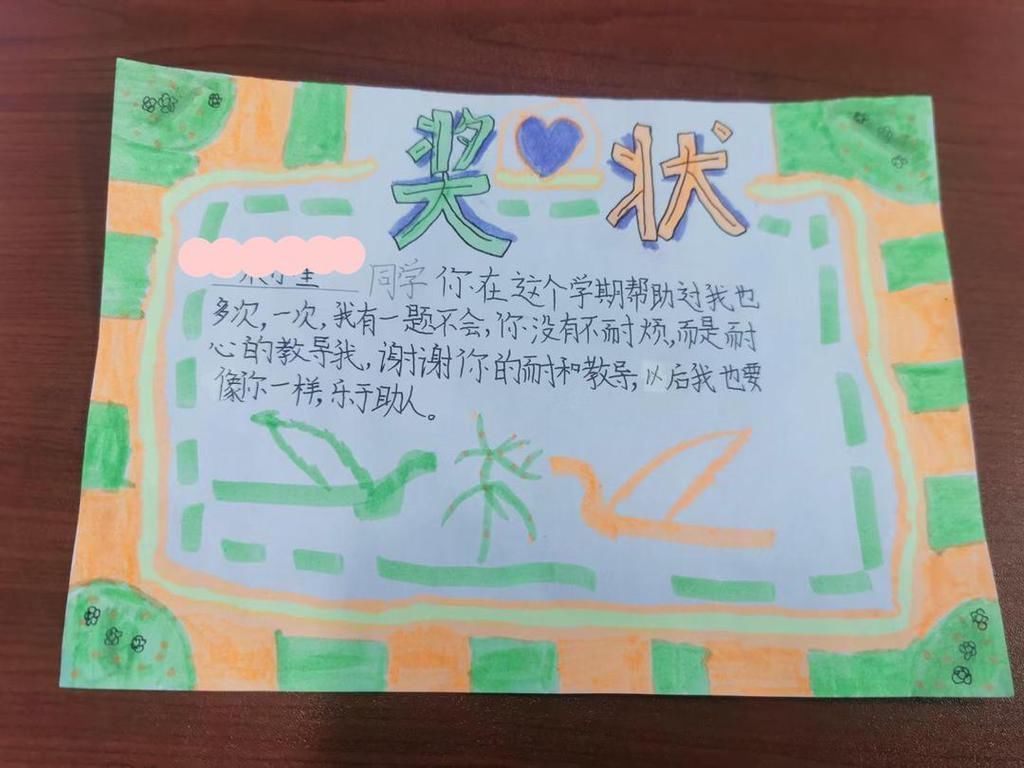 奖状
同学你在这个学期帮助过我也
多次，一次，我有一题不会，你没有不耐烦，而是耐
心的教导我，谢谢你的耐和教导，以后我也要
像你一样，乐于助人。